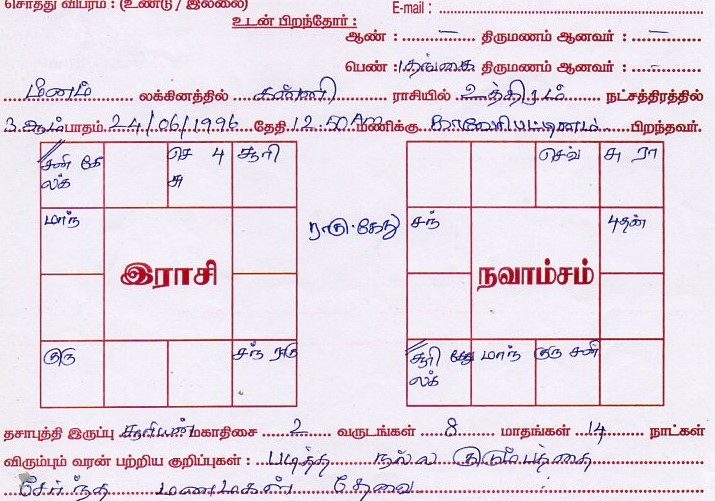 சொத்து விபரம் : (உண்டு / இல்லை)
E-mail :
உடன் பிறந்தோர் :
ஆண் : – திருமணம் ஆனவர் : –
பெண் : தங்கை திருமணம் ஆனவர் : –
மீனம் லக்கினத்தில் கன்னி ராசியில் உத்திரம் நட்சத்திரத்தில்
3 ஆம் பாதம் 24/06/1996 தேதி 12:50 AM மணிக்கு காவேரிபட்டிணம் பிறந்தவர்.
சனி கே லக்
செ 4 சு
சூரி
மாந்
இராசி
குரு
சந் ராகு
ராகு.கேது
செவ்
சு ரா
சந்
நவாம்சம்
சூரி கேது லக்
மாந்
குரு சனி
தசாபுத்தி இருப்பு சூரியன் மகாதிசை 2 வருடங்கள் 8 மாதங்கள் 14 நாட்கள்
விரும்பும் வரன் பற்றிய குறிப்புகள் : படித்த நல்ல குடும்பத்தை
சேர்ந்த மணமகன் தேவை